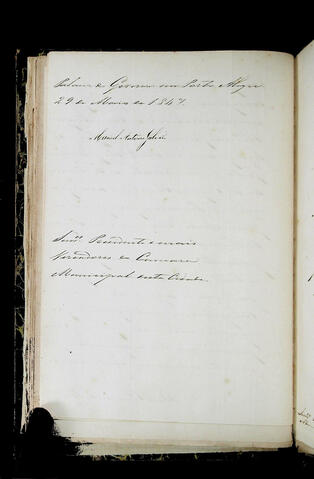 Palacio do Governo em Porto Alegre
29 de Março de 1847.
Manoel Antonio Galvão
Senr.es Presidente e mais
Vereadores da Camara
Municipal desta Cidade.